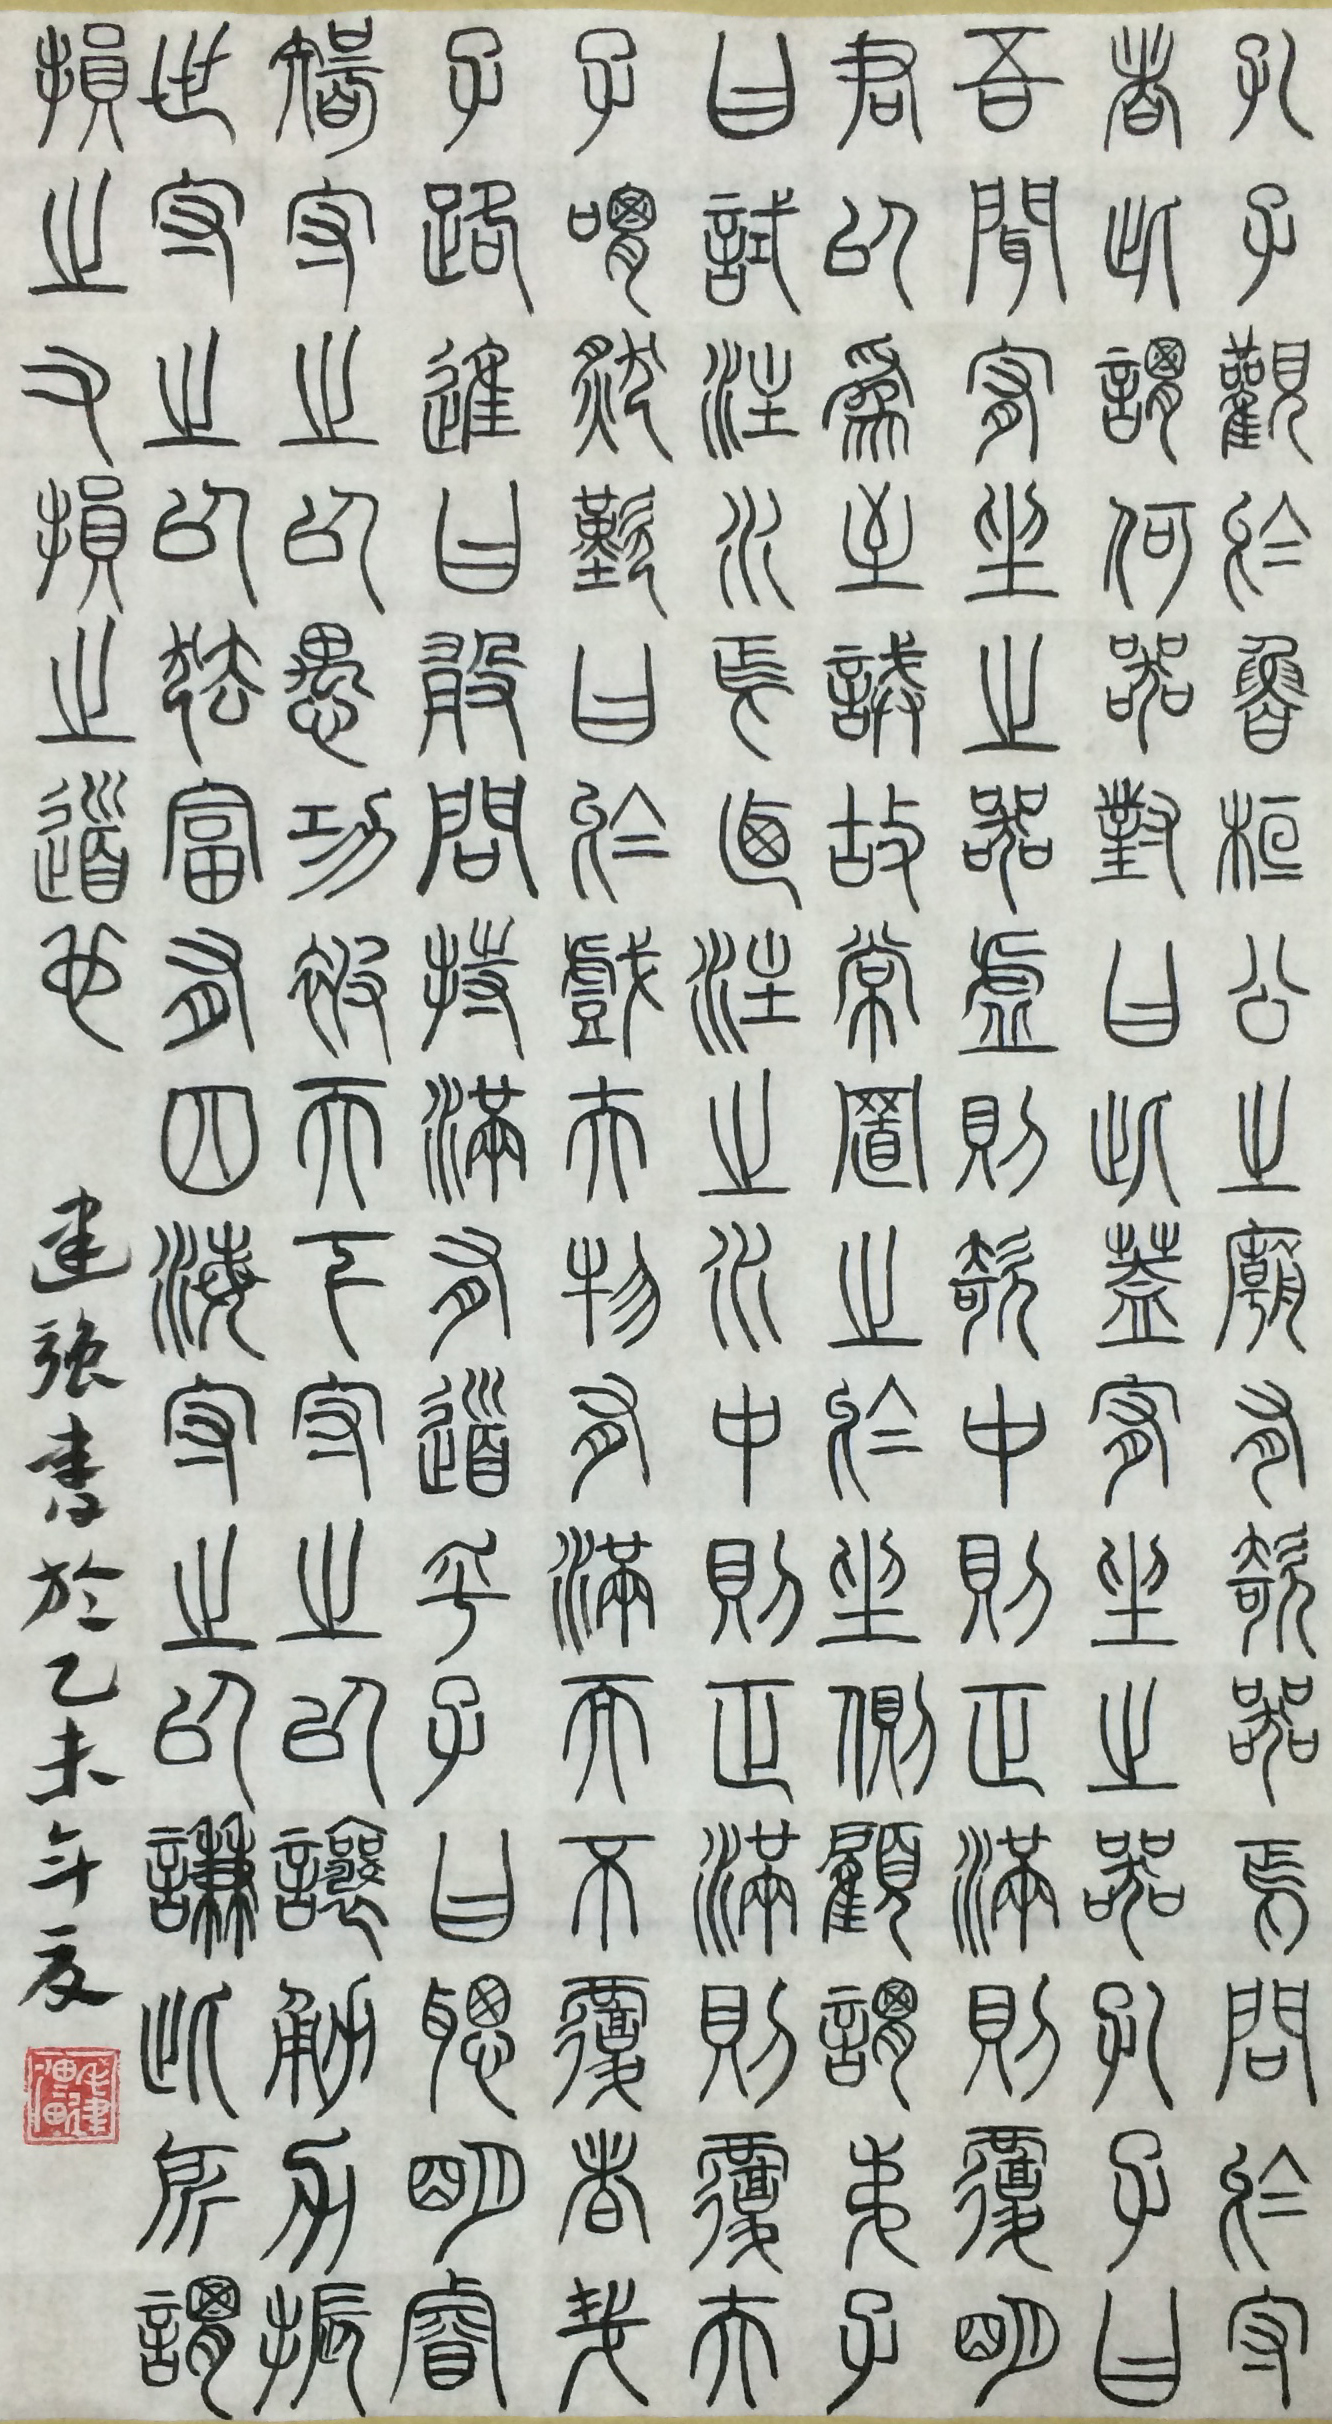 孔子觀於魯桓公之廟有欹器焉問於守
者此謂何器對曰此蓋宥坐之器孔子曰
吾聞宥坐之器虛則欹中則正滿則覆明
君以為至誡故常置之於坐側顧謂弟子
曰試注水焉乃注之水中則正滿則覆夫
子喟然歎曰於戲夫物有滿而不覆者哉
子路進曰敢問持滿有道乎子曰聰明睿
智守之以愚功被天下守之以讓勇力振
世守之以怯富有四海守之以謙此所謂
損之又損之道也
建強書於乙未年夏